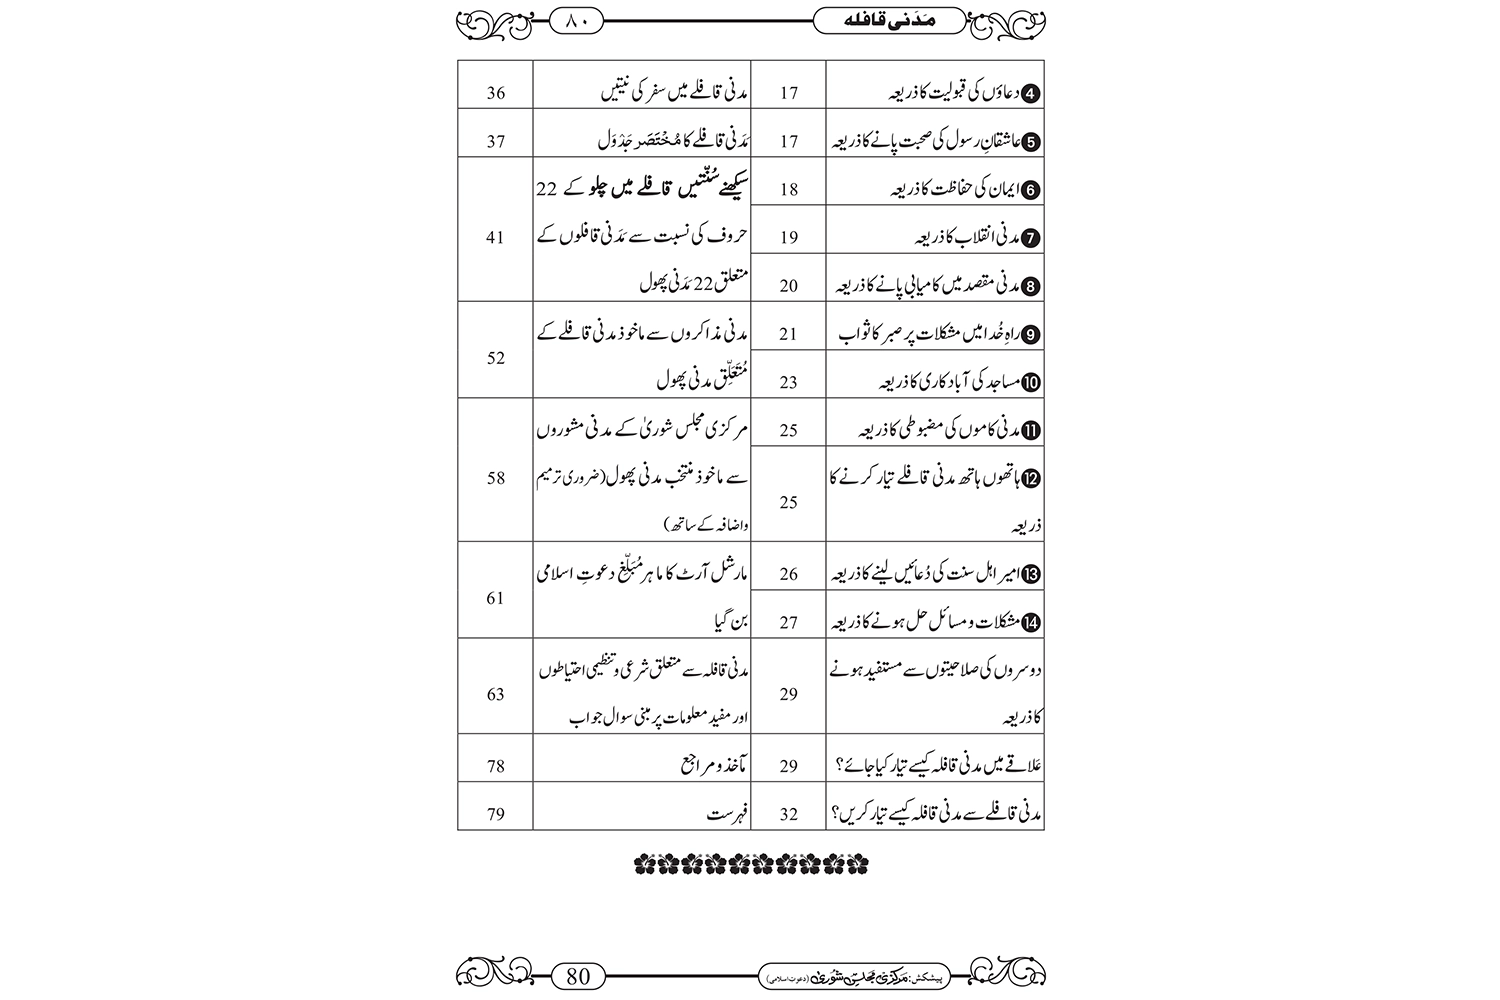 مَدَنی قافلہ
۸۰
❹ دعاؤں کی قبولیت کا ذریعہ 17
❺ عاشقانِ رسول کی صحبت پانے کا ذریعہ 17
❻ ایمان کی حفاظت کا ذریعہ 18
❼ مدنی انقلاب کا ذریعہ 19
❽ مدنی مقصد میں کامیابی پانے کا ذریعہ 20
❾ راہِ خُدا میں مشکلات پر صبر کا ثواب 21
❿ مساجد کی آباد کاری کا ذریعہ 23
⓫ مدنی کاموں کی مضبوطی کا ذریعہ 25
⓬ ہاتھوں ہاتھ مدنی قافلے تیار کرنے کا
ذریعہ 25
⓭ امیر اہل سنت کی دُعائیں لینے کا ذریعہ 26
⓮ مشکلات و مسائل حل ہونے کا ذریعہ 27
دوسروں کی صلاحیتوں سے مستفید ہونے
کا ذریعہ 29
عَلاقے میں مدنی قافلہ کیسے تیار کیا جائے؟ 29
مدنی قافلے سے مدنی قافلہ کیسے تیار کریں؟ 32
مدنی قافلے میں سفر کی نیتیں 36
مَدَنی قافلے کا مُخْتَصَر جَدْوَل 37
سیکھنے سُنّتیں قافلے میں چلو کے 22
حروف کی نسبت سے مَدَنی قافلوں کے
متعلق 22 مَدَنی پھول 41
مدنی مذاکروں سے ماخوذ مدنی قافلے کے
مُتَعَلِّق مدنی پھول 52
مرکزی مجلس شوریٰ کے مدنی مشوروں
سے ماخوذ منتخب مدنی پھول (ضروری ترمیم
و اضافہ کے ساتھ) 58
مارشل آرٹ کا ماہر مُبَلِّغِ دعوتِ اسلامی
بن گیا 61
مدنی قافلہ سے متعلق شرعی و تنظیمی احتیاطوں
اور مفید معلومات پر مبنی سوال جواب 63
مآخذ و مراجع 78
فہرست 79
پیشکش: مَرکزی مَجلسِ شوریٰ (دعوتِ اسلامی)
80